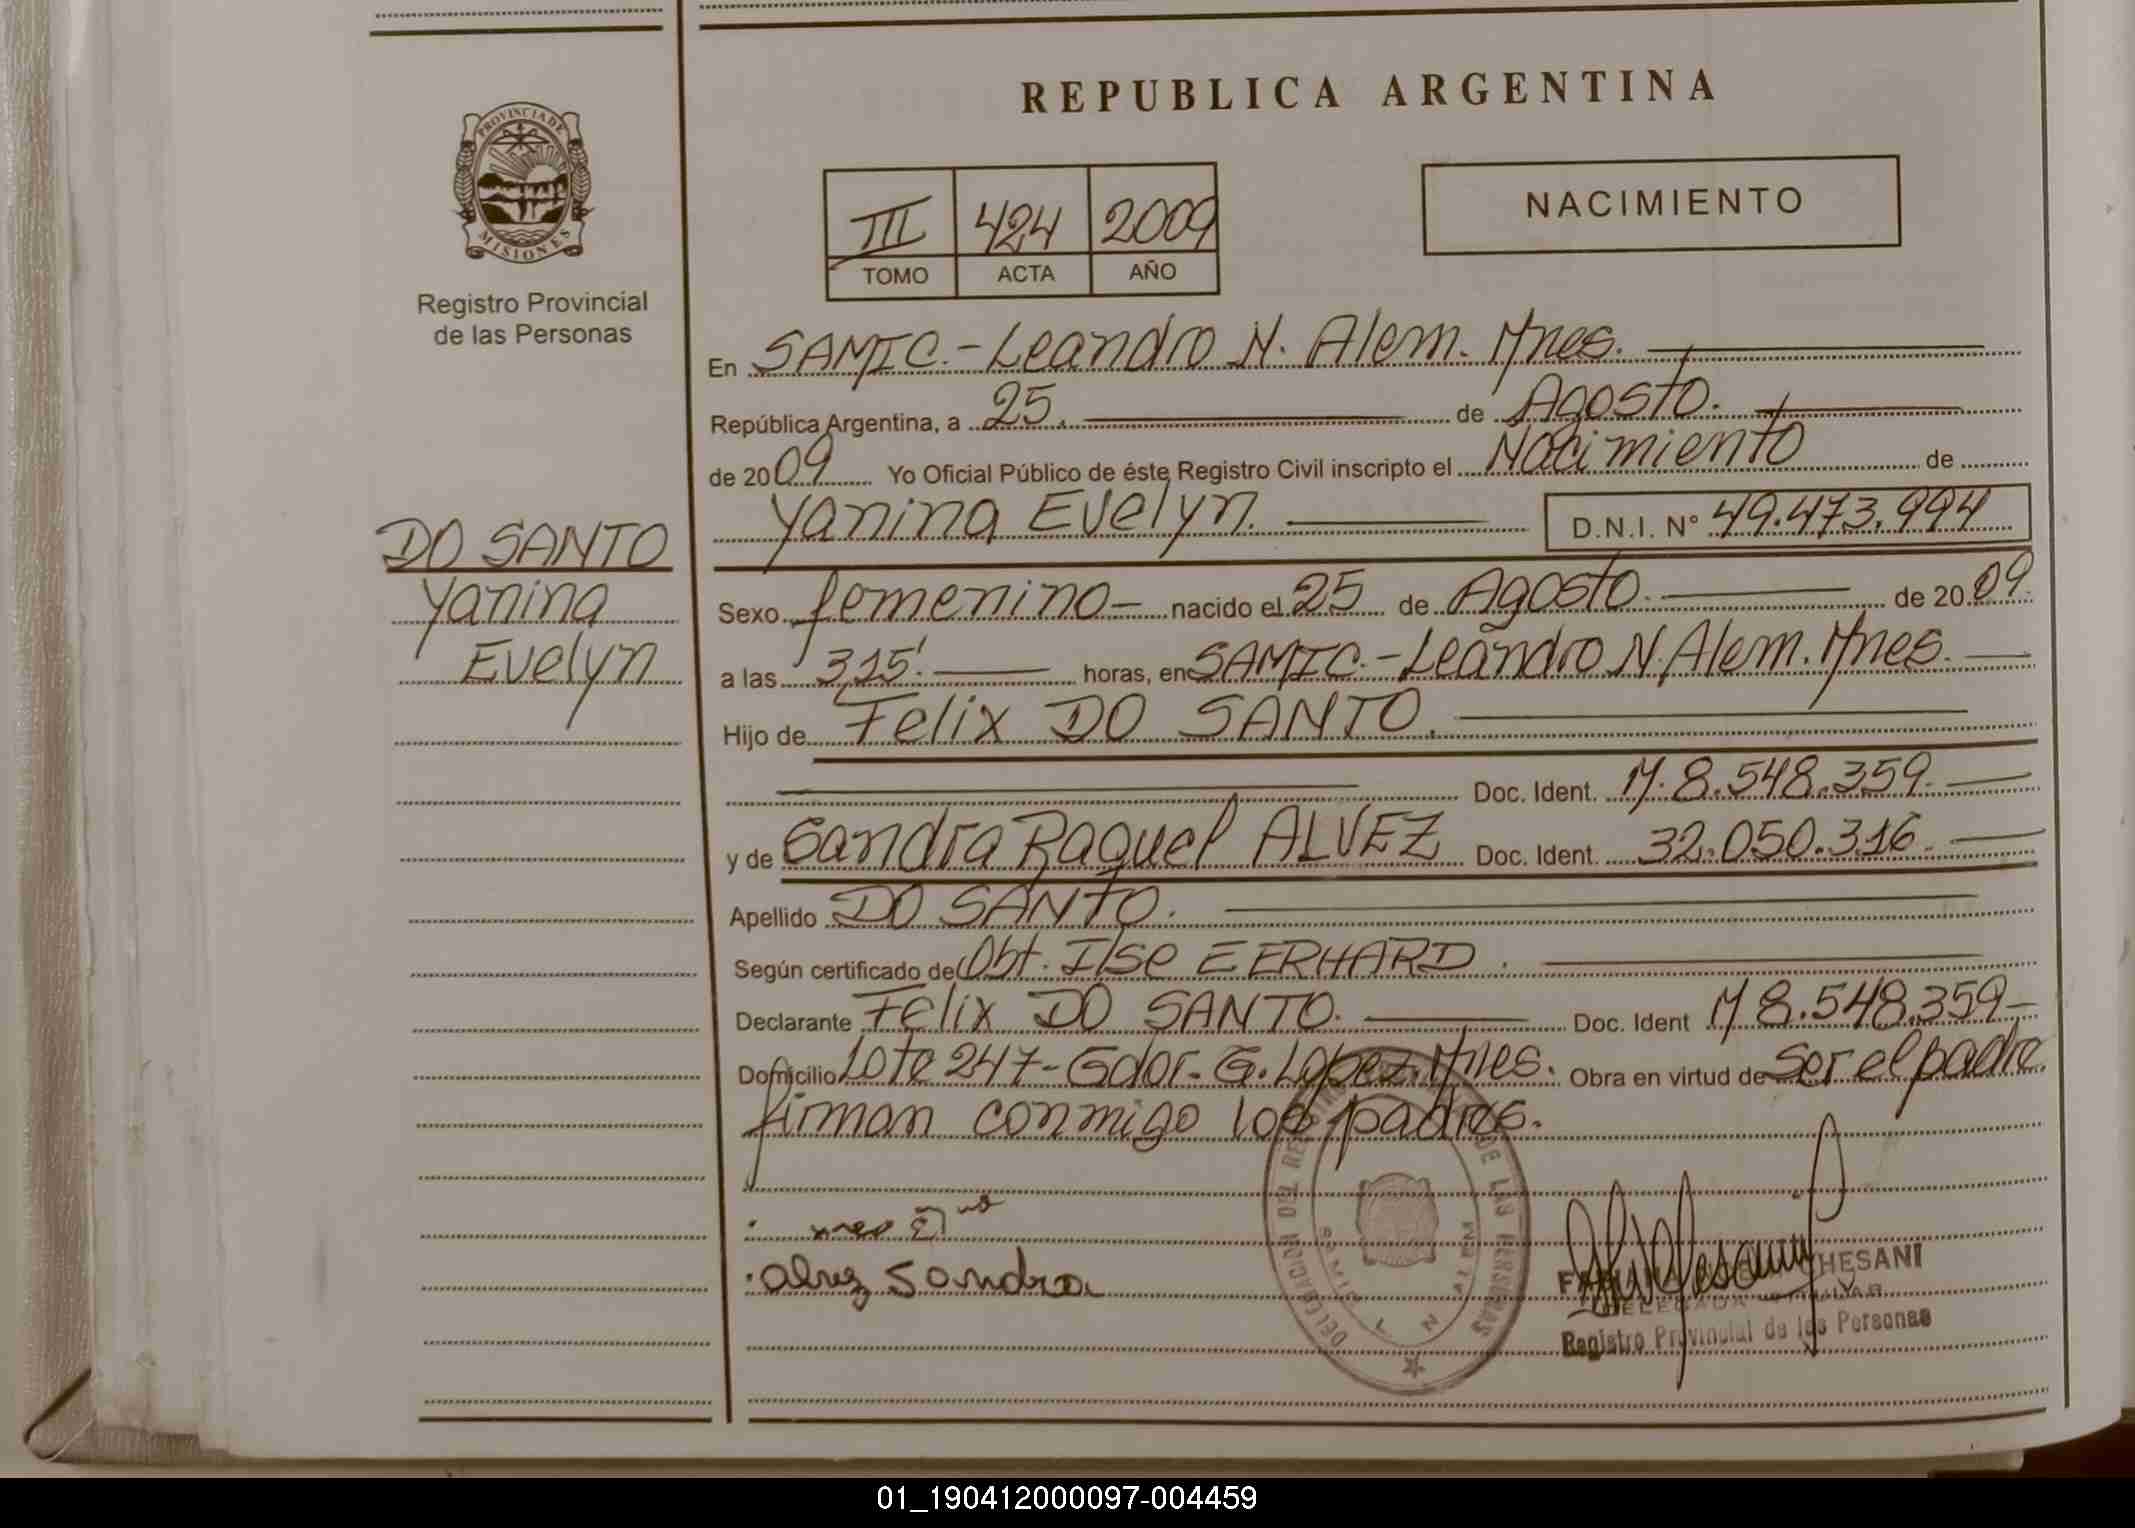 REPUBLICA ARGENTINA
PROVINCIA DE
MISIONES
Registro Provincial
de las Personas
III 424 2009
TOMO ACTA AÑO
NACIMIENTO
En SAMIC.- Leandro N. Alem. Mnes.
República Argentina, a 25. de Agosto.
de 2009 Yo Oficial Público de éste Registro Civil inscripto el Nacimiento de
Yanina Evelyn. D.N.I. N° 49.473.994
DO SANTO
Yanina
Evelyn
Sexo femenino- nacido el 25 de Agosto. de 2009.
a las 3,15'. horas, en SAMIC.- Leandro N. Alem. Mnes.
Hijo de Felix DO SANTO.
Doc. Ident. M. 8.548.359.
y de Sandra Raquel ALVEZ Doc. Ident. 32.050.316.
Apellido DO SANTO.
Según certificado de Obt. Ilse EERHARD.
Declarante Felix DO SANTO. Doc. Ident M 8.548.359-
Domicilio Lote 247- Gdor. G. Lopez. Mnes. Obra en virtud de ser el padre.
firman conmigo los padres.
Alvez Sandra
DELEGACION DEL DE LAS PERSONAS
CHESANI
DELEGADA TITULAR
Registro Provincial de las Personas
01_190412000097-004459